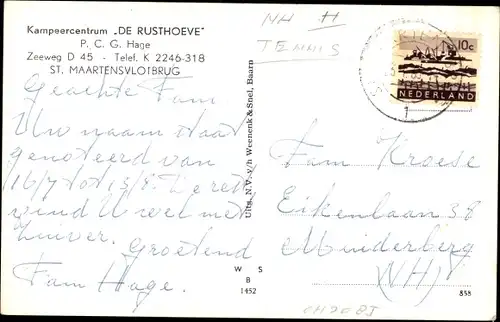 Kampeercentrum „DE RUSTHOEVE"
P. C. G. Hage
Zeeweg D 45 - Telef. K 2246-318
ST. MAARTENSVLOTBRUG
NH H
TENNIS
10c
NEDERLAND
Geachte Fam
Uw naam staat
genoteerd van
16/7 tot 13/8. De rest
vind U wel met
Zuiver. Groetend
Fam Hage.
Uitg. N.V. v/h Weenenk & Snel, Baarn
Fam Kroese
Eikenlaan 38
Muiderberg
(NH)
W S
B
1452
858